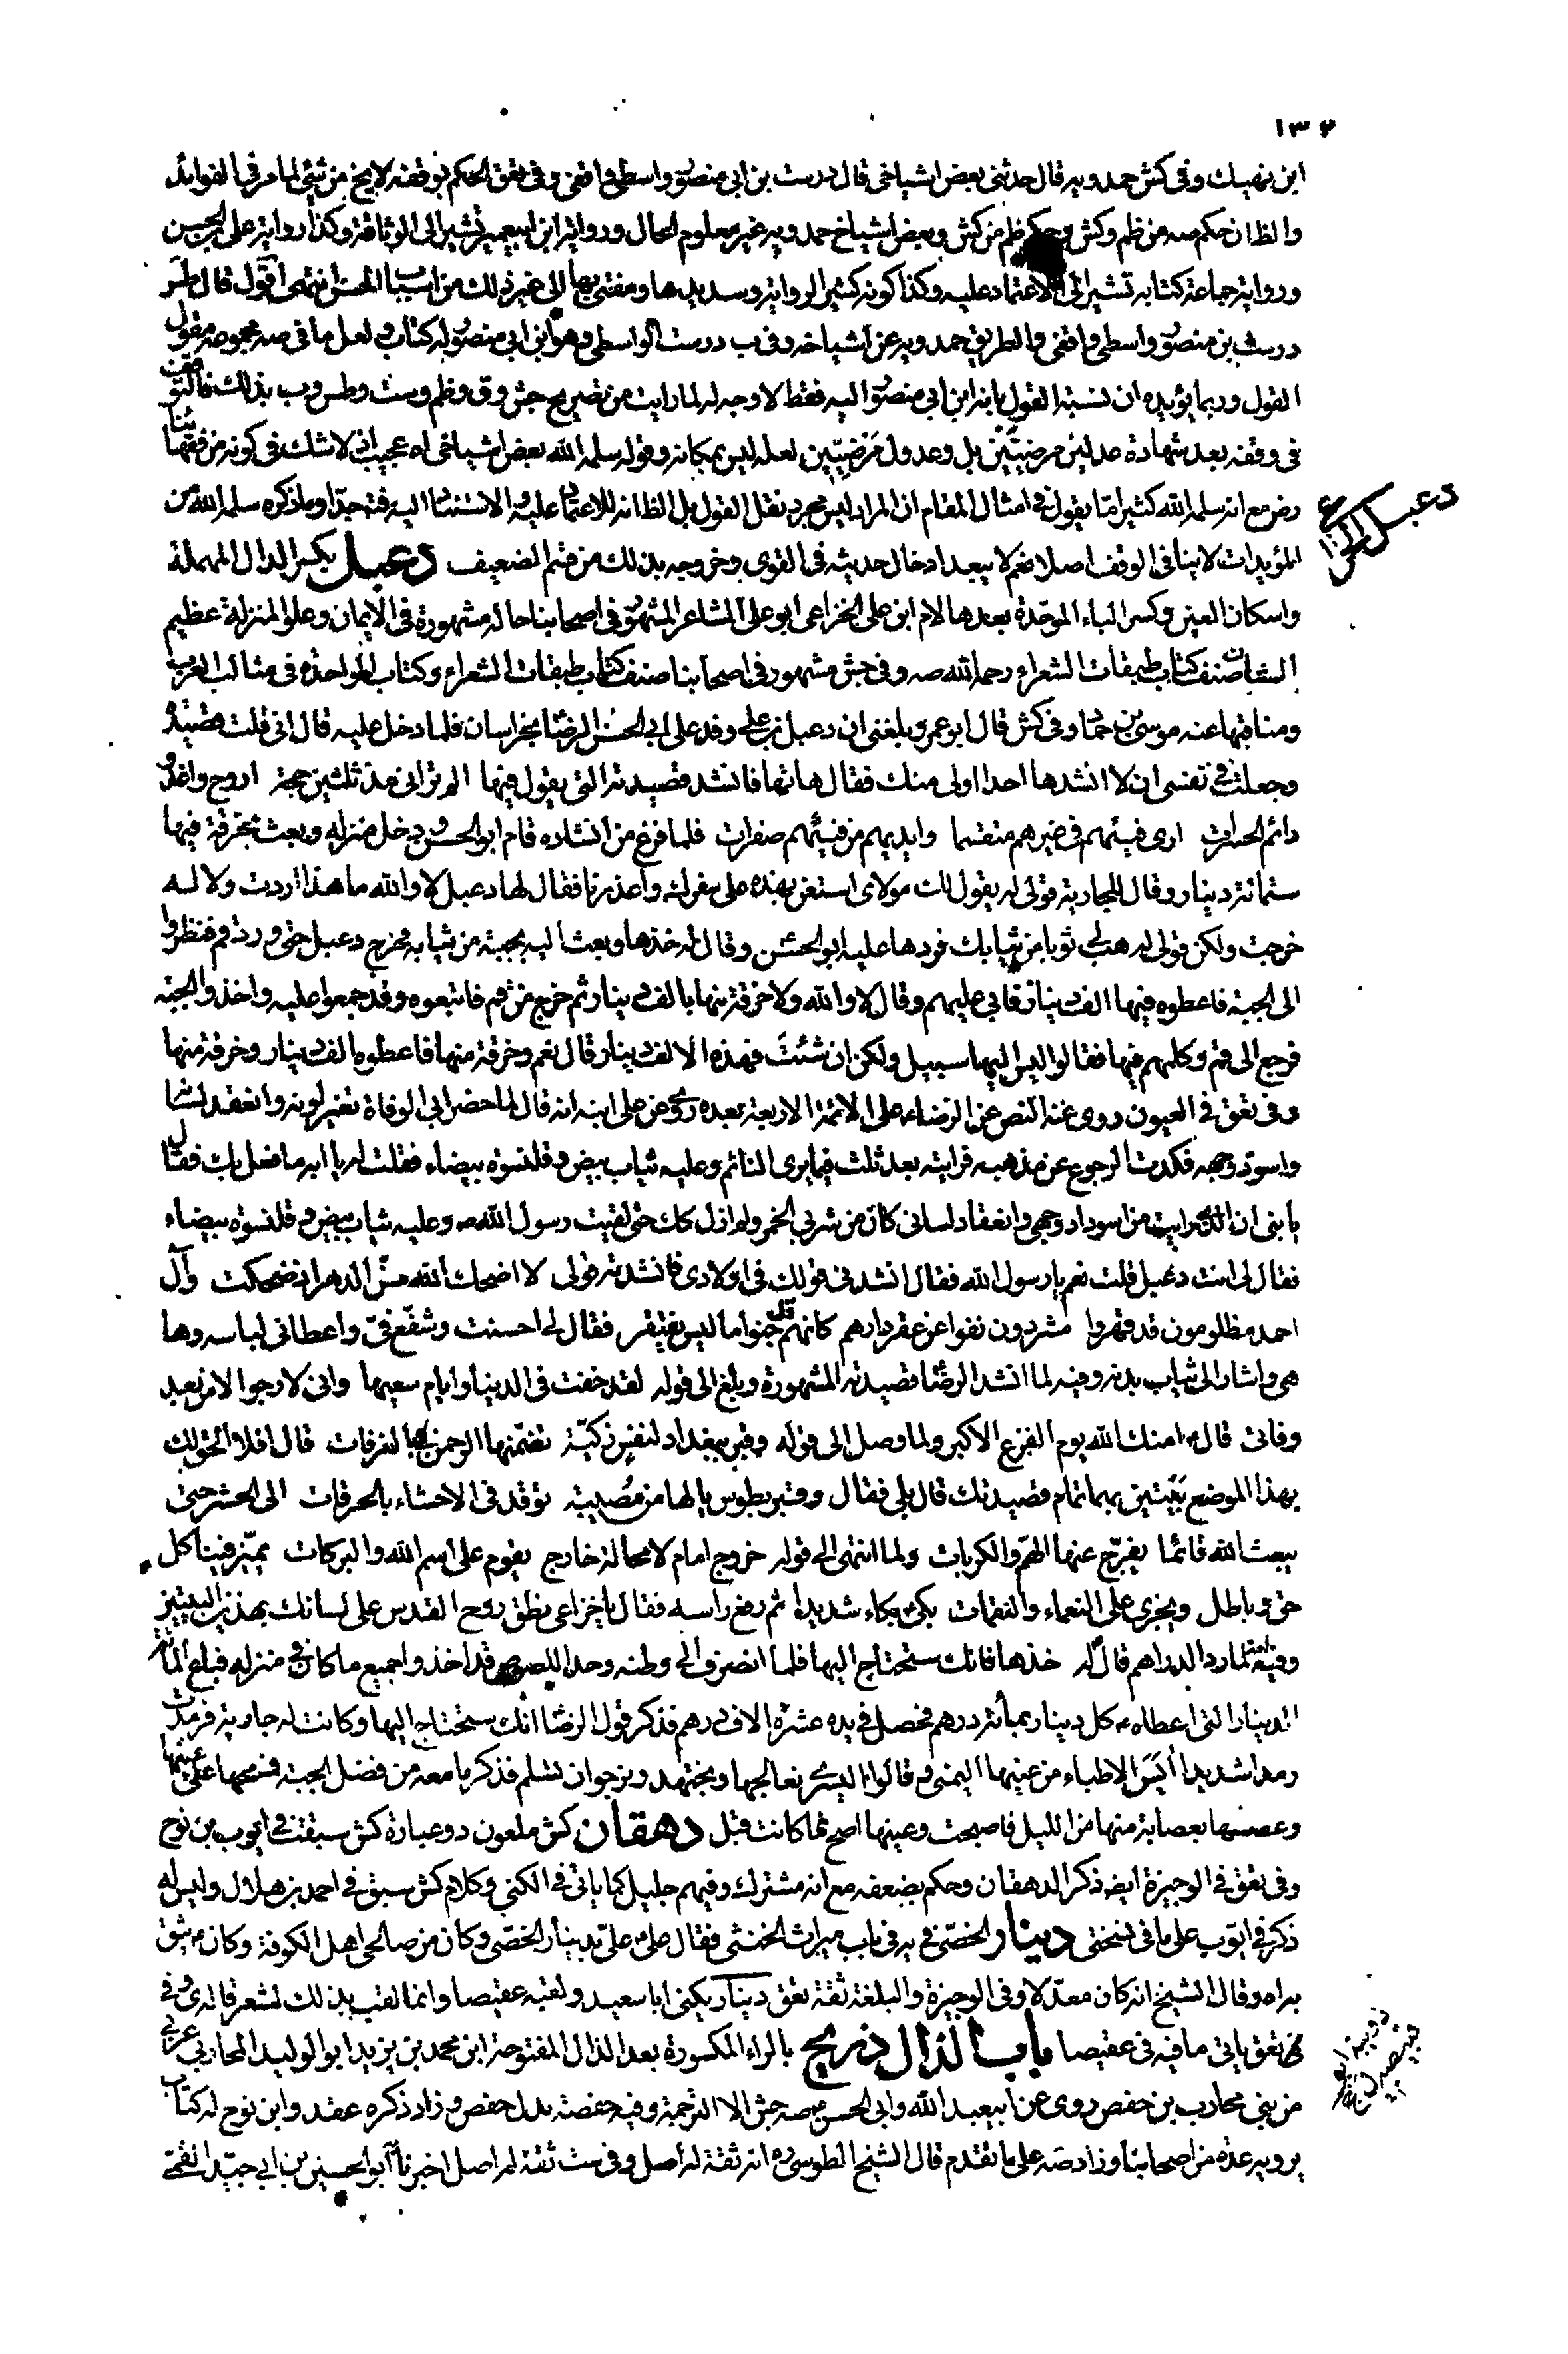 ١٣٢
ابن نهيك وفى كش حمدويه قال حدثنى بعض اشياخى قال درست بن ابى منصور واسطى واقفى وفى تعق الحكم بوقفه لا يخ من شئ لما مر فى الفوائد
والظ ان حكم صه من ظم وكش وحكم ظم من كش وبعض اشياخ حمدويه غير معلوم الحال ورواية ابن ابيعمير تشير الى الوثاقة وكذا رواية على بن الحسن
ورواية جماعة كتابه تشير الى الاعتماد عليه وكذا كونه كثير الرواية وسديدها ومفتى بها الى غير ذلك من اسباب الحسن انتهى اقول قال طس
درست بن منصور واسطى واقفى والطريق حمدويه عن اشياخه وفى ب درست الواسطى وهو ابن ابى منصور له كتاب ولعل ما فى صه مجموعه مقول
القول وربما يؤيده ان نسبة القول بانه ابن ابى منصور اليه فقط لا وجه له لما رايت من تصريح جش وق وظم وست وطس وب بذلك فالتوقف
فى وقفه بعد شهادة عدلين مرضيين بل وعدول مرضيين لعله ليس بمكانه وقوله سلمه الله بعض اشياخى اه عجيب اذ لا شك فى كونه من فقهائنا
رض مع انه سلمه الله كثيرا ما يقول فى امثال المقام ان المراد ليس مجرد نقل القول بل الظ انه للاعتماد عليه والاستناد اليه فتدبر جدا وما ذكره سلمه الله من
المؤيدات لا ينافى الوقف اصلا نعم لا يبعد ادخال حديثه فى القوى وخروجه بذلك من قسم الضعيف دعبل بكسر الدال المهملة
واسكان العين وكسر الباء الموحدة بعدها لام ابن على الخزاعى ابو على الشاعر المشهور فى اصحابنا حاله مشهورة فى الايمان وعلو المنزلة عظيم
الشان صنف كتاب طبقات الشعراء رحمه الله صه وفى جش مشهور فى اصحابنا صنف كتاب طبقات الشعراء وكتاب الواحدة فى مثالب العرب
ومناقبها عنه موسى بن حماد وفى كش قال ابو عمرو بلغنى ان دعبل بن على وفد على ابى الحسن الرضا بخراسان فلما دخل عليه قال انى قلت قصيدة
وجعلت فى نفسى ان لا انشدها احدا اولى منك فقال هاتها فانشد قصيدته التى يقول فيها الم تر انى مذ ثلثين حجة اروح واغدو
دائم الحسرات ارى فيئهم فى غيرهم متقسما وايديهم من فيئهم صفرات فلما فرغ من انشاده قام ابو الحسن ودخل منزله وبعث بخرقة فيها
ستمائة دينار وقال للجارية قولى له يقول لك مولاى استعن بهذه على سفرك واعذرنا فقال لها دعبل لا والله ما هذا اردت ولا له
خرجت ولكن قولى له هب لى ثوبا من ثيابك فردها عليه ابو الحسن وقال له خذها وبعث اليه بجبة من ثيابه فخرج دعبل حتى ورد قم فنظروا
الى الجبة فاعطوه فيها الف دينار فابى عليهم وقال لا والله ولا خرقة منها بالف دينار ثم خرج من قم فاتبعوه وقد جمعوا عليه واخذوا الجبة
فرجع الى قم وكلمهم فيها فقالوا ليس اليها سبيل ولكن ان شئت فهذه الالف دينار قال نعم وخرقة منها فاعطوه الف دينار وخرقة منها
وفى تعق فى العيون روى عنه النص عن الرضاء على الائمة الاربعة بعده وعن على ابنه انه قال لما حضر ابى الوفاة تغير لونه وانعقد لسانه
واسود وجهه فكدت الرجوع عن مذهبه فرايته بعد ثلث فيما يرى النائم وعليه ثياب بيض وقلنسوة بيضاء فقلت له يا ابه ما فعل بك فقال
يا بنى ان الذى رايت من اسوداد وجهى وانعقاد لسانى كان من شربى الخمر ولم ازل كك حتى لقيت رسول الله ص وعليه ثياب بيض وقلنسوة بيضاء
فقال لى انت دعبل قلت نعم يا رسول الله فقال انشدنى قولك فى اولادى فانشدته قولى لا اضحك الله سن الدهر ان ضحكت وآل
احمد مظلومون قد قهروا مشردون نفوا عن عقر دارهم كانهم قد جنوا ما ليس يغتفر فقال لى احسنت وشفع فى واعطانى لباسه وها
هى واشار الى ثياب بدنه وفيه لما انشد الرضا قصيدته المشهورة وبلغ الى قوله لقد خفت فى الدنيا وايام سعيها وانى لارجو الامن بعد
وفاتى قال ع امنك الله يوم الفزع الاكبر ولما وصل الى قوله وقبر ببغداد لنفس زكية تضمنها الرحمن بالغرفات قال افلا الحق لك
بهذا الموضع بيتين بهما تمام قصيدتك قال بلى فقال وقبر بطوس يا لها من مصيبة توقد فى الاحشاء بالحرقات الى الحشر حتى
يبعث الله قائما يفرج عنها الهم والكربات ولما انتهى الى قوله خروج امام لا محالة خارج يقوم على اسم الله والبركات يميز فينا كل
حق وباطل ويجزى على النعماء والنقمات بكى ع بكاء شديدا ثم رفع راسه فقال يا خزاعى نطق روح القدس على لسانك بهذين البيتين
وفيه لما رد الدراهم قال له خذها فانك ستحتاج اليها فلما انصرف الى وطنه وجد اللصوص قد اخذوا جميع ما كان فى منزله فباع المائة
الدينار التى اعطاه ع كل دينار بمائة درهم فحصل فى يده عشرة الاف درهم فذكر قول الرضا انك ستحتاج اليها وكانت له جارية فرمدت
رمدا شديدا ايس الاطباء من عينها اليمنى وقالوا اليسرى نعالجها ونجتهد ونرجو ان تسلم فذكر ما معه من فضل الجبة فمسحها على عينها
وعصبها بعصابة منها من الليل فاصبحت وعينها اصح مما كانت قبل دهقان كش ملعون د وعبارة كش سبقت فى ايوب بن نوح
وفى تعق فى الوجيزة ايض ذكر الدهقان وحكم بضعفه مع انه مشترك وفيهم جليل كما ياتى فى الكنى وكلام كش سبق فى احمد بن هلال وليس له
ذكر فى ايوب على ما فى نسختى دينار الخصى فى يه فى باب ميراث الخنثى فقال على ع على بدينار الخصى وكان من صالحى اهل الكوفة وكان ع يثق
براه وقال الشيخ انه كان معدلا وفى الوجيزة والبلغة ثقة تعق دينار يكنى ابا سعيد ولقبه عقيصا وانما لقب بذلك لشعر قاله ى وفى
تعق ياتى ما فيه فى عقيصا باب الذال ذريح بالراء المكسورة بعد الذال المفتوحة ابن محمد بن يزيد ابو الوليد المحاربى عربى
من بنى محارب بن خفص روى عن ابيعبد الله وابى الحسن ع صه جش الا الترجمة وفيه حفصة بدل حفص وزاد ذكره عقد وابن نوح له كتاب
يرويه عدة من اصحابنا وزاد صه على ما تقدم قال الشيخ الطوسى ره انه ثقة له اصل وفى ست ثقة له اصل اخبرنا ابو الحسين بن ابى جيد القمى